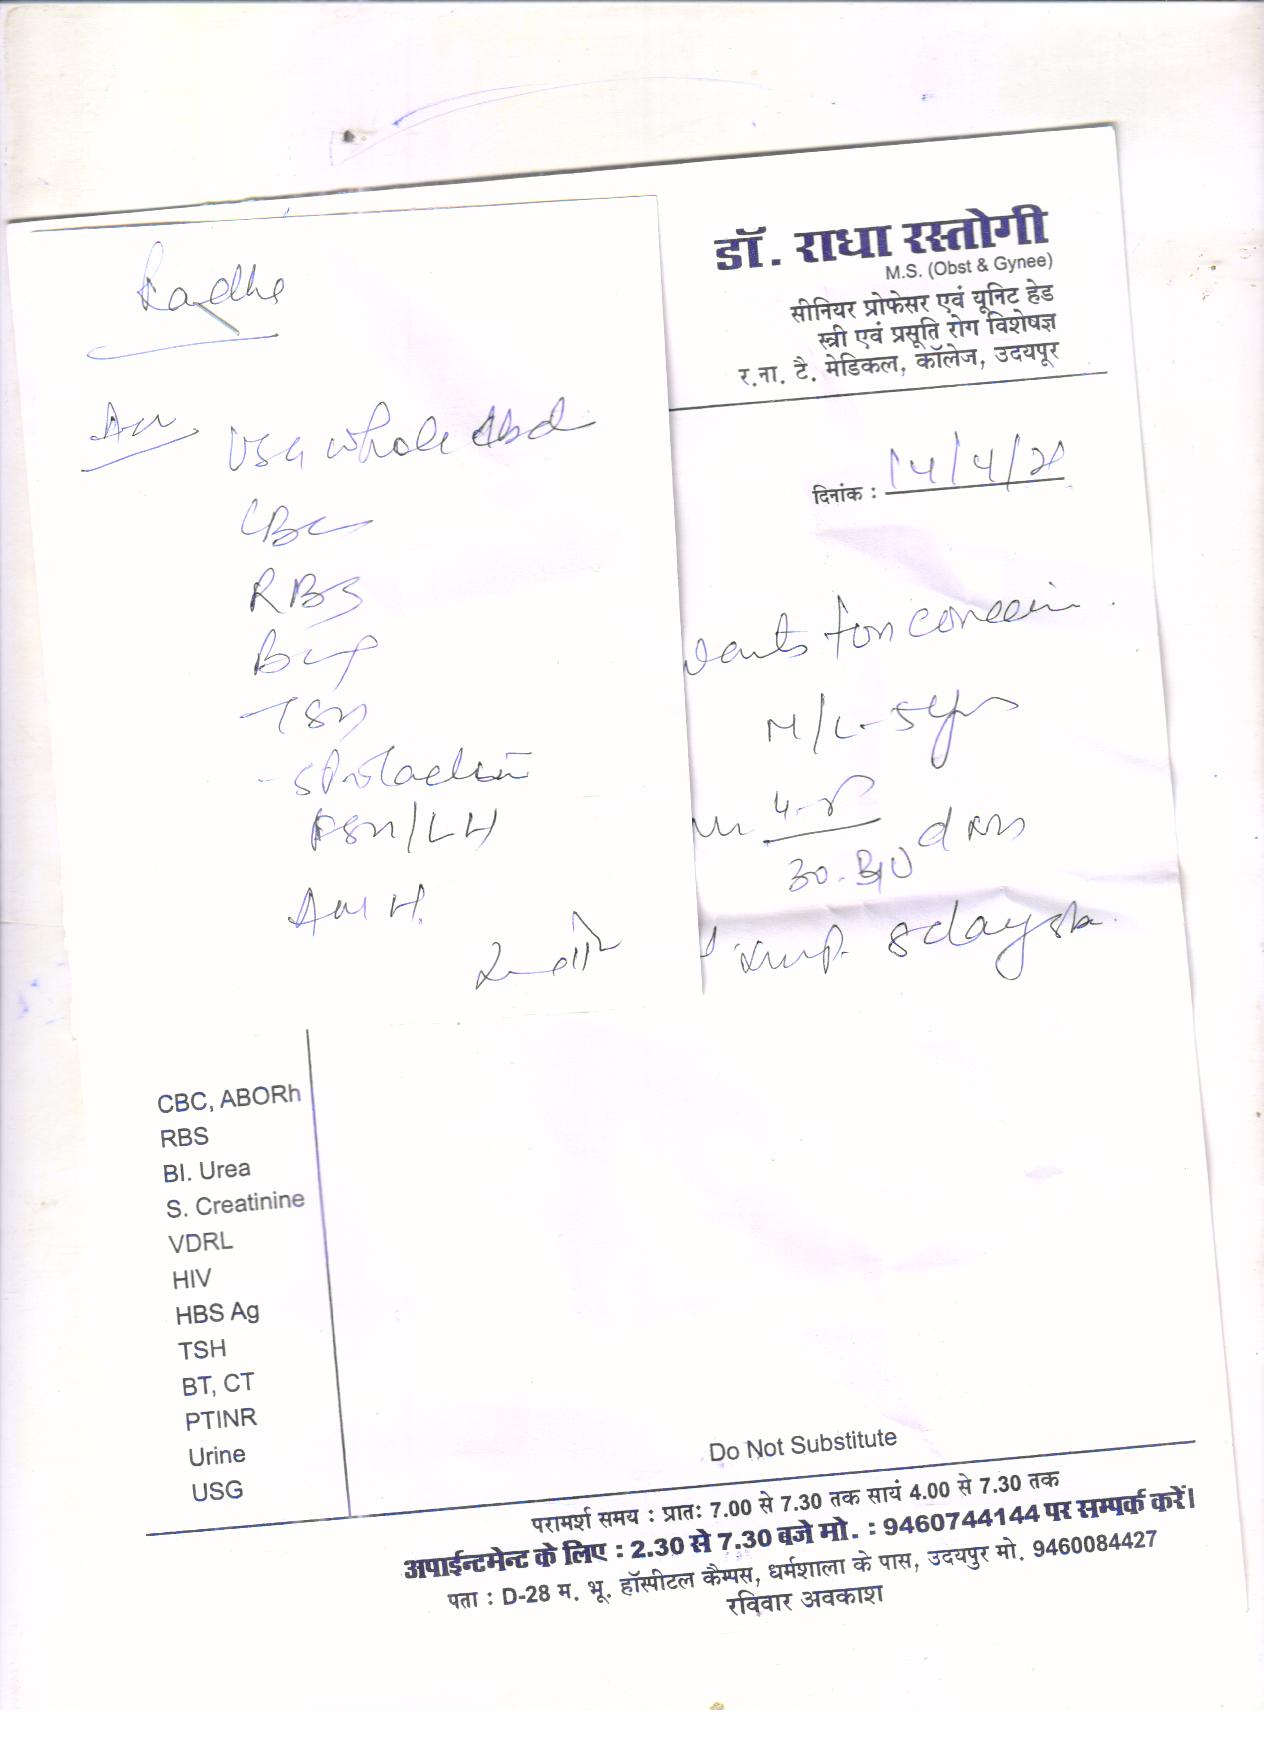 Radhe
Adv
USG whole Abd
CBC
RBS
TSH
S Prolactin
FSH/LH
AMH.
डॉ. राधा रस्तोगी
M.S. (Obst & Gynee)
सीनियर प्रोफेसर एवं यूनिट हेड
स्त्री एवं प्रसूति रोग विशेषज्ञ
र.ना. टै. मेडिकल, कॉलेज, उदयपूर
दिनांक : 14/4/21
wants for conceive.
M/L-5yrs
30.
LMP. 8 days
CBC, ABORh
RBS
Bl. Urea
S. Creatinine
VDRL
HIV
HBS Ag
TSH
BT, CT
PTINR
Urine
USG
Do Not Substitute
परामर्श समय : प्रातः 7.00 से 7.30 तक सायं 4.00 से 7.30 तक
अपाईन्टमेन्ट के लिए : 2.30 से 7.30 बजे मो. : 9460744144 पर सम्पर्क करें।
पता : D-28 म. भू. हॉस्पीटल कैम्पस, धर्मशाला के पास, उदयपुर मो. 9460084427
रविवार अवकाश